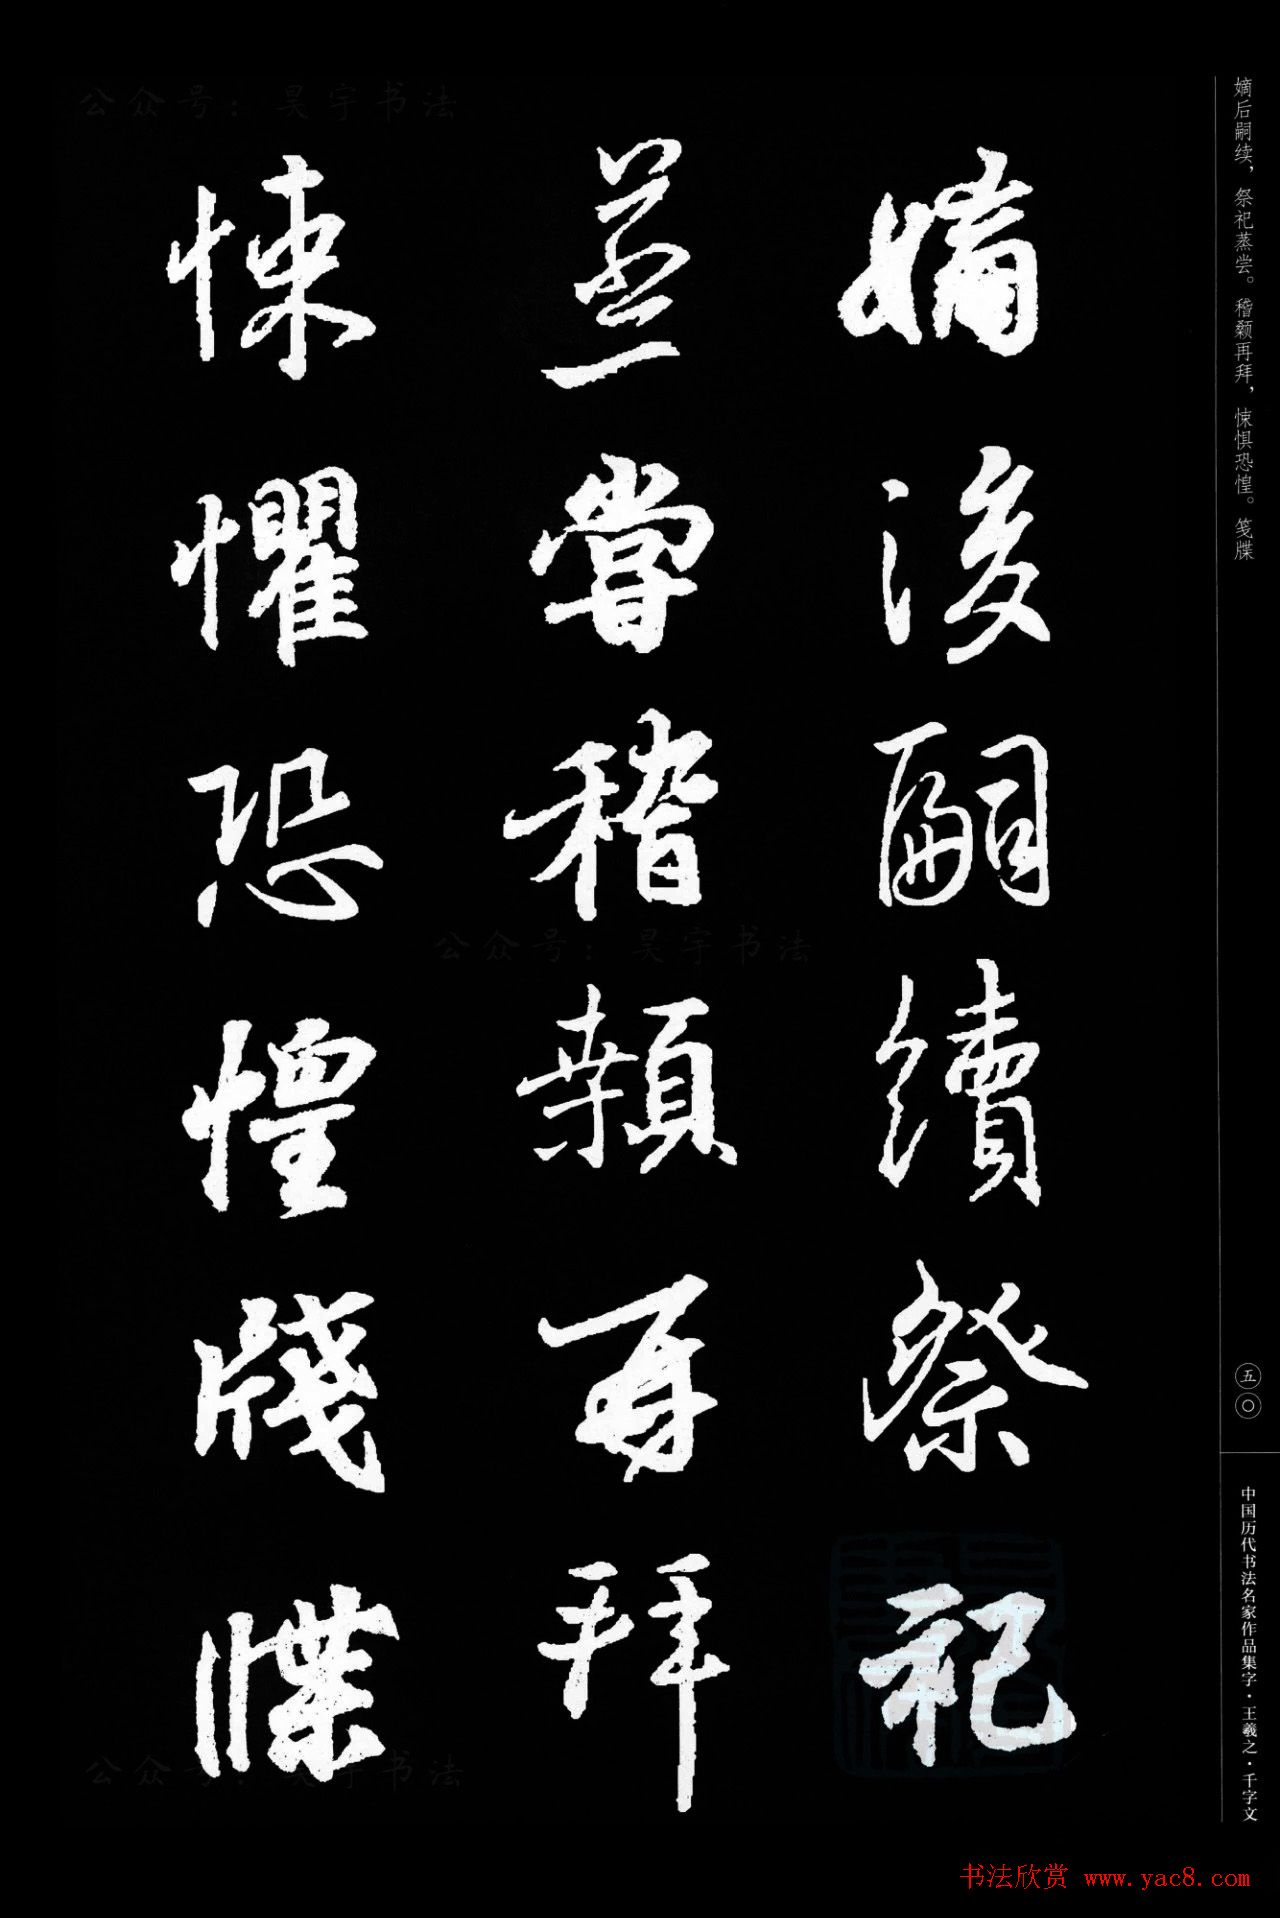 嫡后嗣续，祭祀蒸尝。稽颡再拜，悚惧恐惶。笺牒
嫡後嗣續祭祀
蒸嘗稽顙再拜
悚懼恐惶牋牒
五〇
中国历代书法名家作品集字·王羲之·千字文
公众号：昊宇书法
公众号：昊宇书法
公众号：昊宇书法
书法欣赏 www.yac8.com